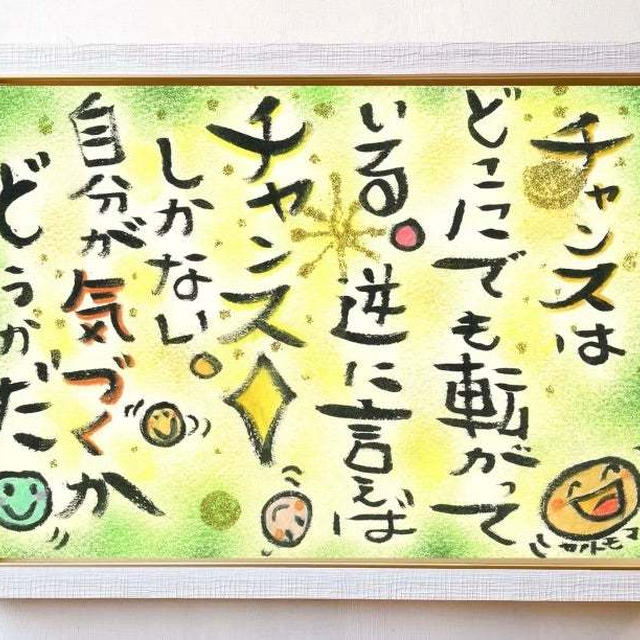 チャンスは
どこにでも転がって
いる。逆に言えば
チャンス
しかない。
自分が気づくか
どうかだ